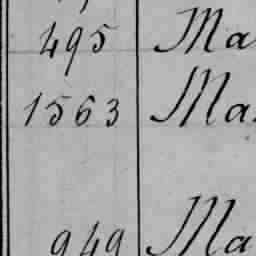 495 Ma
1563 Ma
949 Ma